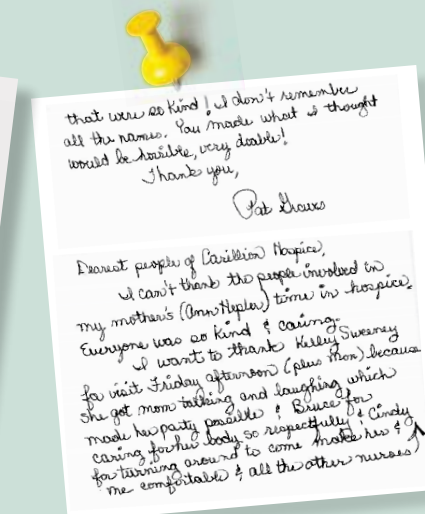 that were so kind! I don't remember
all the names. You made what I thought
would be horrible, very doable!
Thank you,
Pat
Dearest people of Carillion Hospice,
I can't thank the people involved in
my mother's (Ann Hepler) time in hospice.
Everyone was so kind & caring.
I want to thank Kelley Sweeney
for visit Friday afternoon (plus mon) because
she got mom talking and laughing which
made her party possible & Bruce for
caring for her body so respectfully & Cindy
for turning around to come make her &
me comfortable & all the other nurses